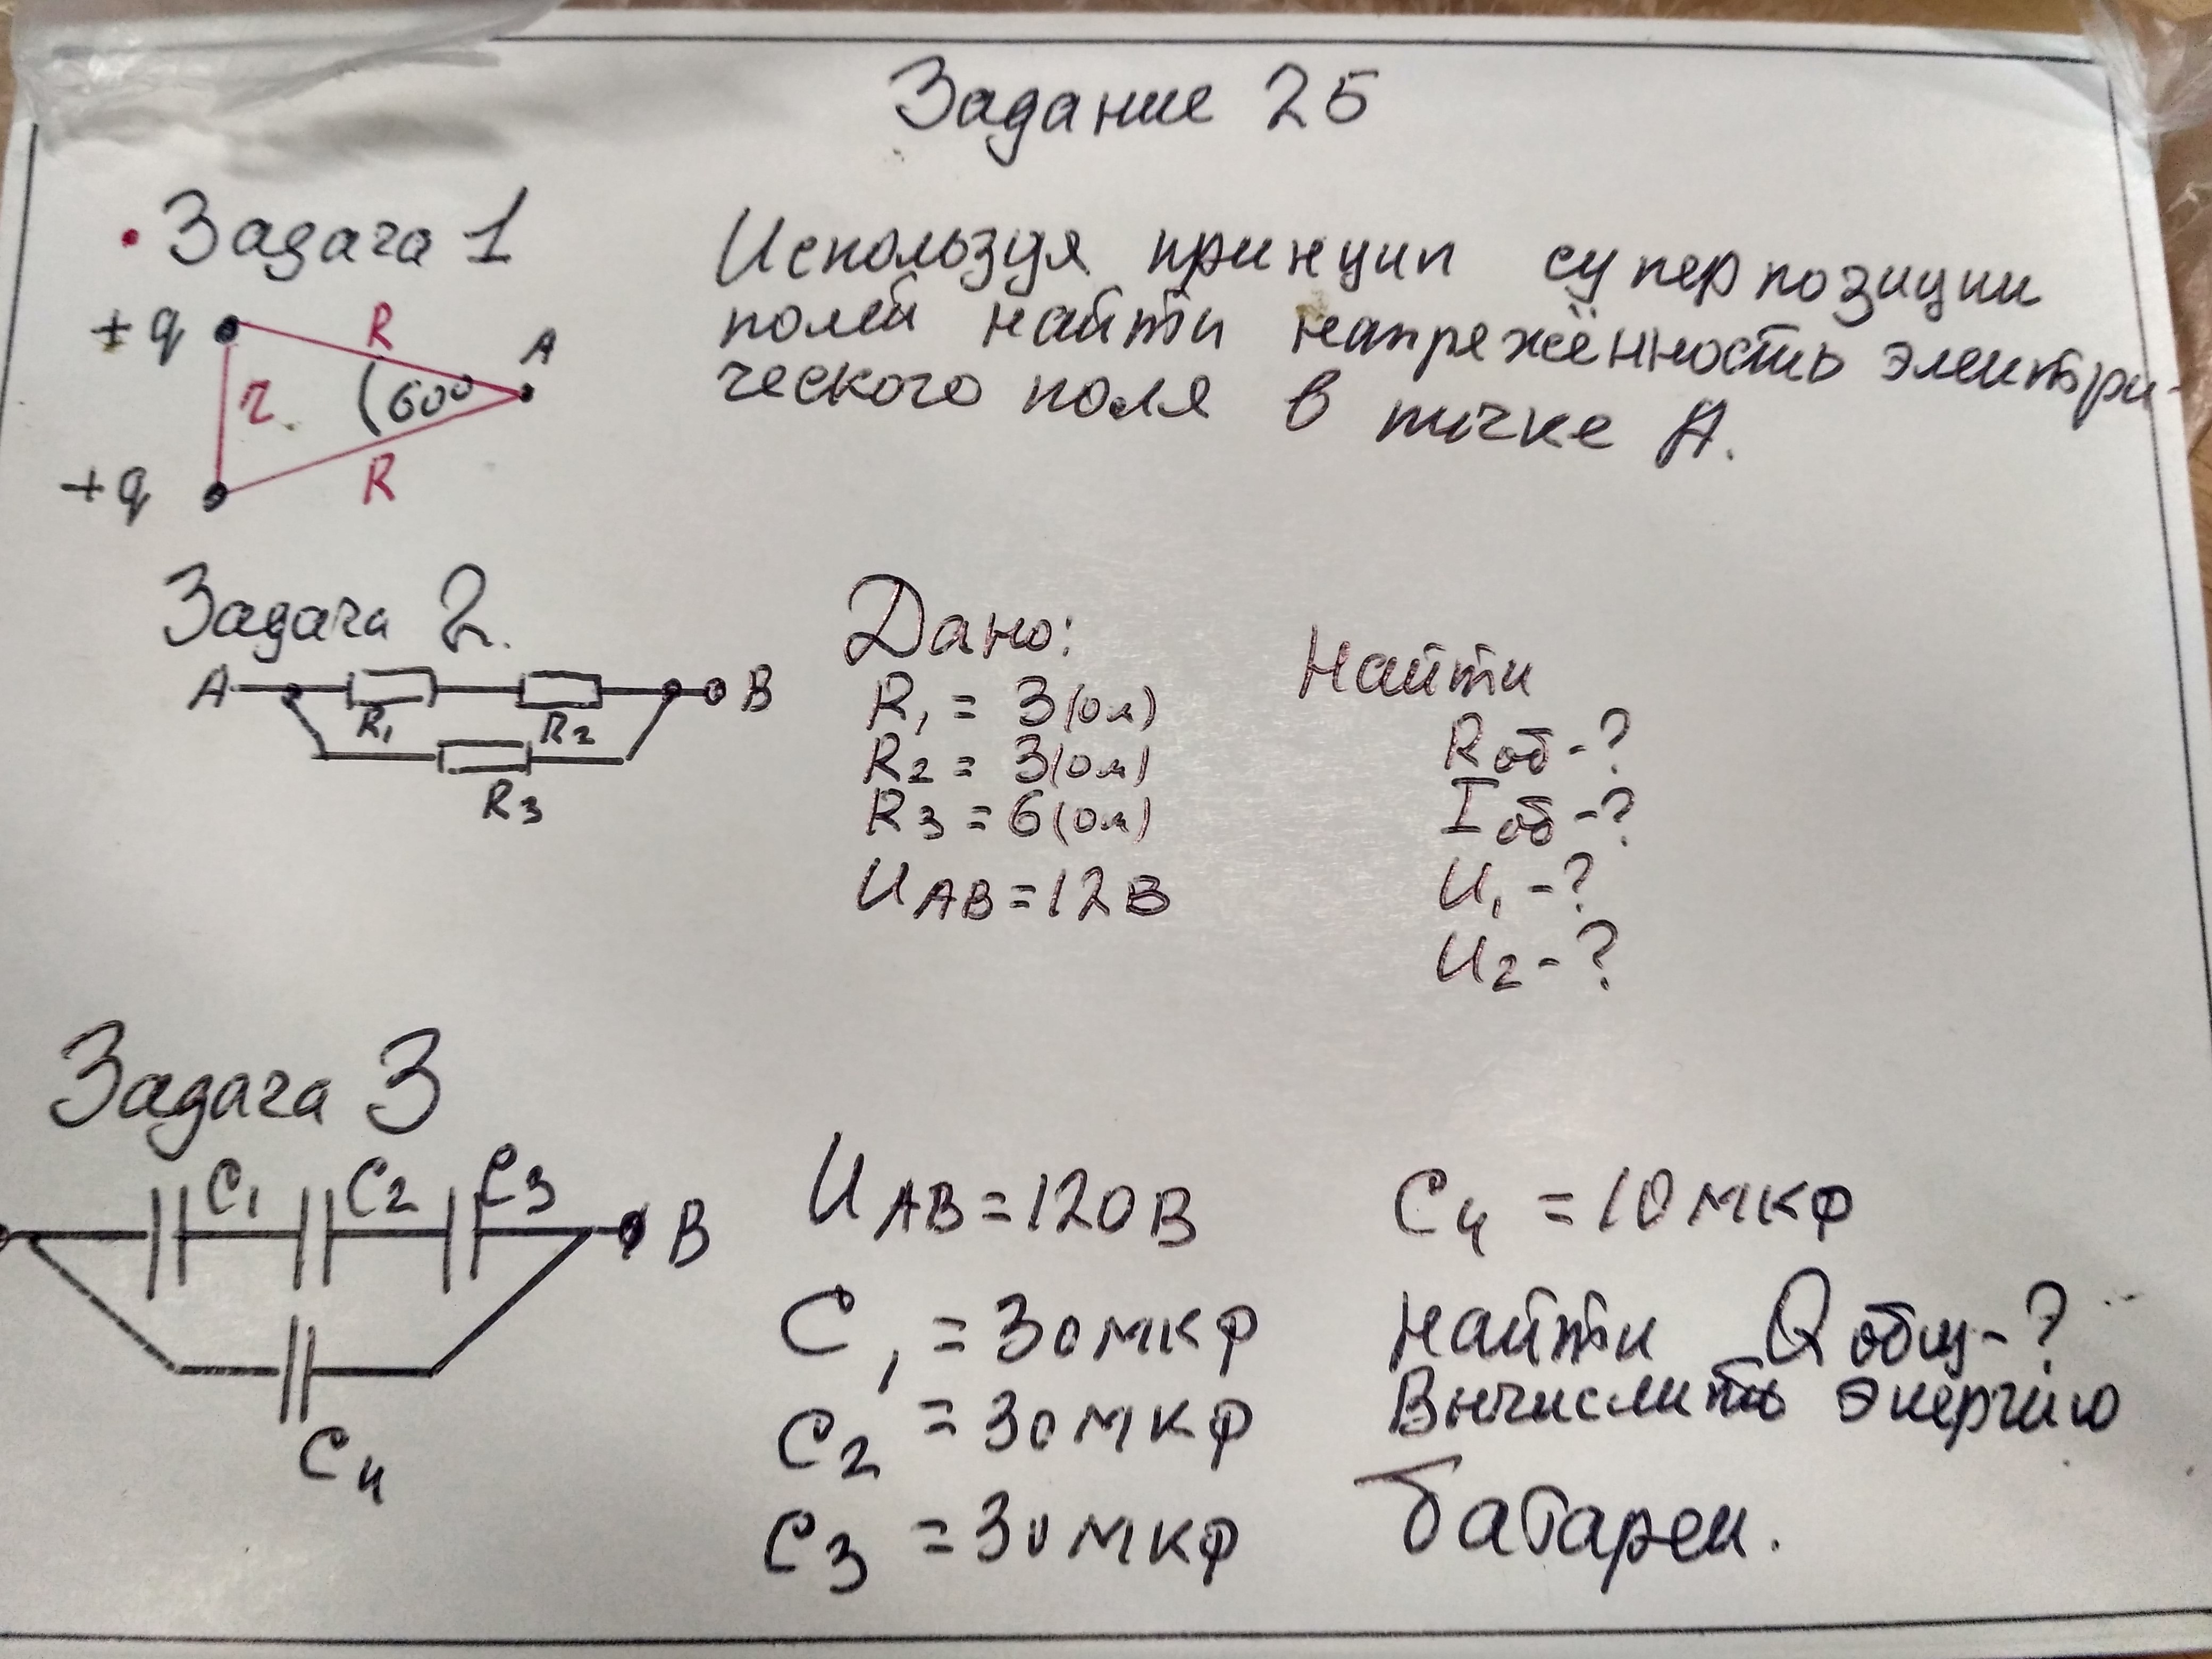 Задание 25
Задача 1
Используя принцип суперпозиции
полей найти напряжённость электри-
ческого поля в точке А.
+q
R
A
r
60°
+q
R
Задача 2.
A
R1
R2
B
R3
Дано:
R1 = 3(ом)
R2 = 3(ом)
R3 = 6(ом)
UAB = 12В
Найти
Rоб - ?
Iоб - ?
U1 - ?
U2 - ?
Задача 3
C1
C2
C3
B
C4
UAB = 120В
C1 = 30мкф
C2 = 30мкф
C3 = 30мкф
C4 = 10мкф
Найти Qобщ - ?
Вычислить энергию
батареи.